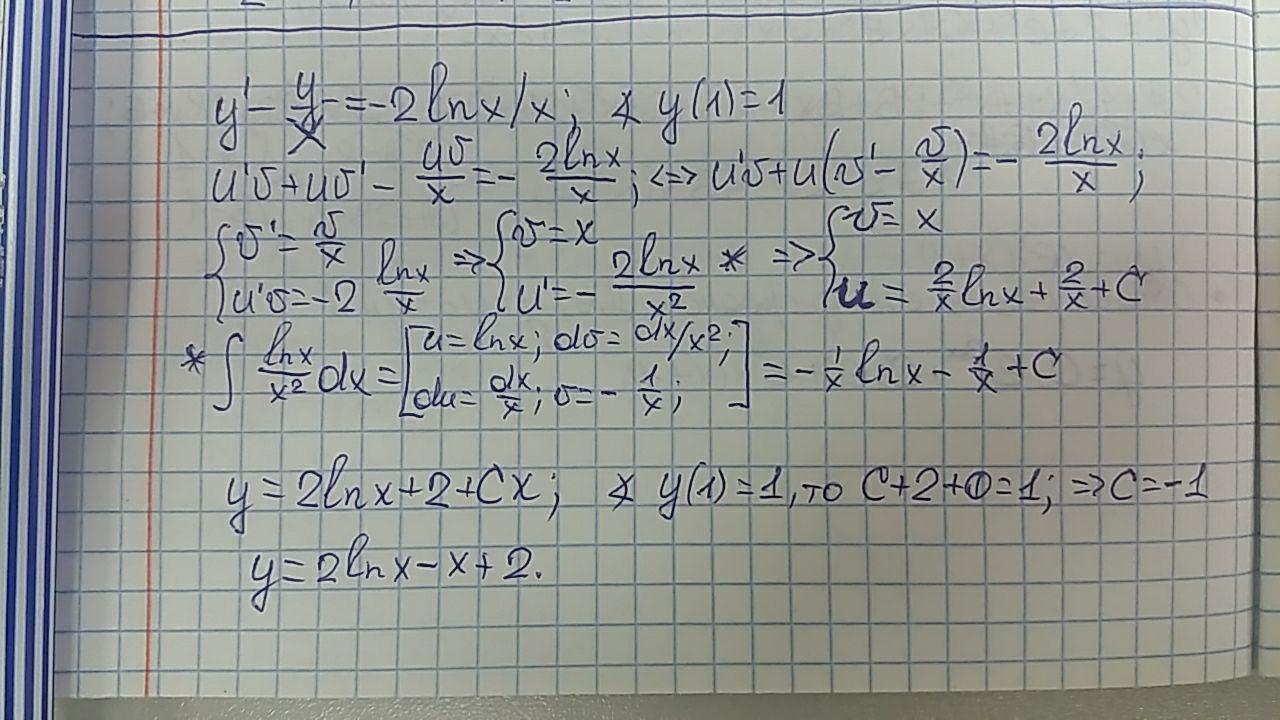 y' - y/x = -2lnx/x; ∢ y(1)=1
u'v+uv' - uv/x = - 2lnx/x; <=> u'v+u(v' - v/x) = - 2lnx/x;
{v' = v/x; u'v = -2 lnx/x => {v = x; u' = - 2lnx/x² * => {v = x; u = 2/x lnx + 2/x + C
* ∫ lnx/x² dx = [u = lnx; dv = dx/x²; du = dx/x; v = - 1/x;] = - 1/x lnx - 1/x + C
y = 2lnx+2+Cx; ∢ y(1)=1, то C+2+0=1; => C=-1
y = 2lnx - x + 2.